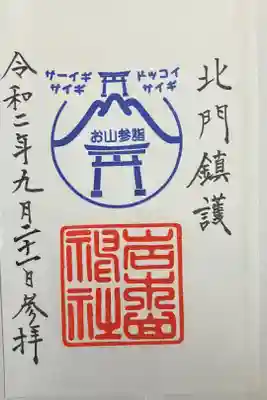 北門鎮護
サーイギ
サイギ
ドッコイ
サイギ
お山参詣
岩木山
神社
令和二年九月二十一日参拝